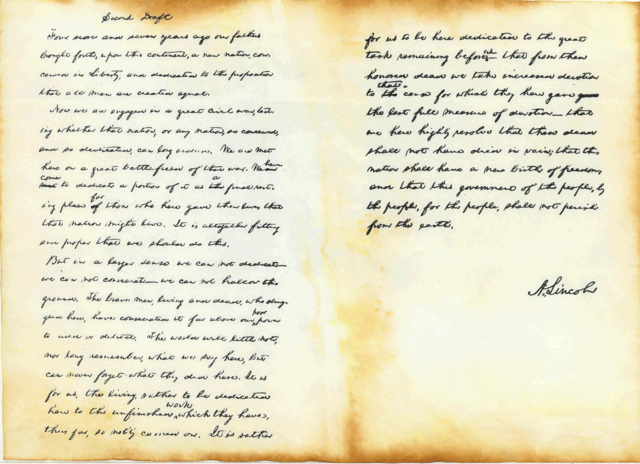 Second Draft
"Four score and seven years ago our fathers
brought forth, upon this continent, a new nation, con-
ceived in Liberty, and dedicated to the proposition
that all men are created equal.
Now we are engaged in a great civil war, test-
ing whether that nation, or any nation, so conceived,
and so dedicated, can long endure. We are met
here on a great battle field of that war. We have
come
to dedicate a portion of it as a final rest-
ing place for those who here gave their lives that
that nation might live. It is altogether fitting
and proper that we should do this.
But in a larger sense we can not dedicate—
we can not consecrate—we can not hallow this
ground. The brave men, living and dead, who strug-
gled here, have consecrated it far above our poor power
to add or detract. The world will little note,
nor long remember, what we say here, but
can never forget what they did here. It is
for us, the living, rather to be dedicated
here to the unfinished work which they have,
thus far, so nobly carried on. It is rather
for us to be here dedicated to the great
task remaining before us—that from these
honored dead we take increased devotion
to the cause for which they here gave
the last full measure of devotion—that
we here highly resolve that these dead
shall not have died in vain; that this
nation shall have a new birth of freedom;
and that this government of the people, by
the people, for the people, shall not perish
from the earth.
A. Lincoln